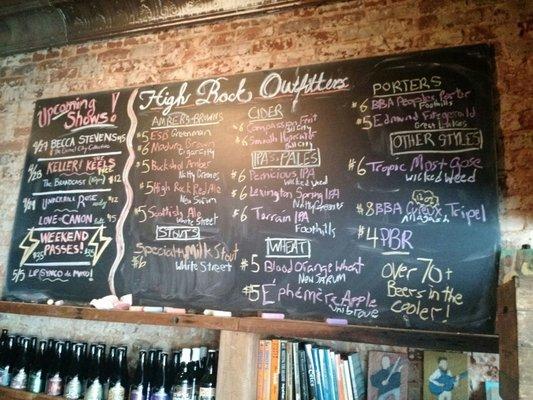 Upcoming Shows!
BECCA STEVENS
KELLERI KEELS
THE BROADCAST $12
UNDERHILL ROSE
LOVE-CANON $15
WEEKEND PASSES!
5/5
High Rock Outfitters
AMBERS-BROWNS
$5 ESB Greenman
$6 Maduro Brown
Cigar City
$5 Buckshot Amber
Natty Greenes
$5 High Rock Red Ale
New Sarum
$5 Scottish Ale
White Street
STOUTS
Specialty Milk Stout
$6 White Street
CIDER
$6
IPAS-PALES
$6 Pernicious IPA
Wicked Weed
$6 Lexington Spring IPA
Natty Greenes
$6 Tarrain IPA
Foothills
WHEAT
$5 Blood Orange Wheat
New Sarum
$5 Éphémère Apple
Unibroue
PORTERS
$6 BBA Peoples Porter
Foothills
$5 Edmund Fitzgerald
Great Lakes
OTHER STYLES
$6 Tropic Most Gose
Wicked Weed
$8 BBA Tripel
$4 PBR
Over 70+
Beers in the
cooler!